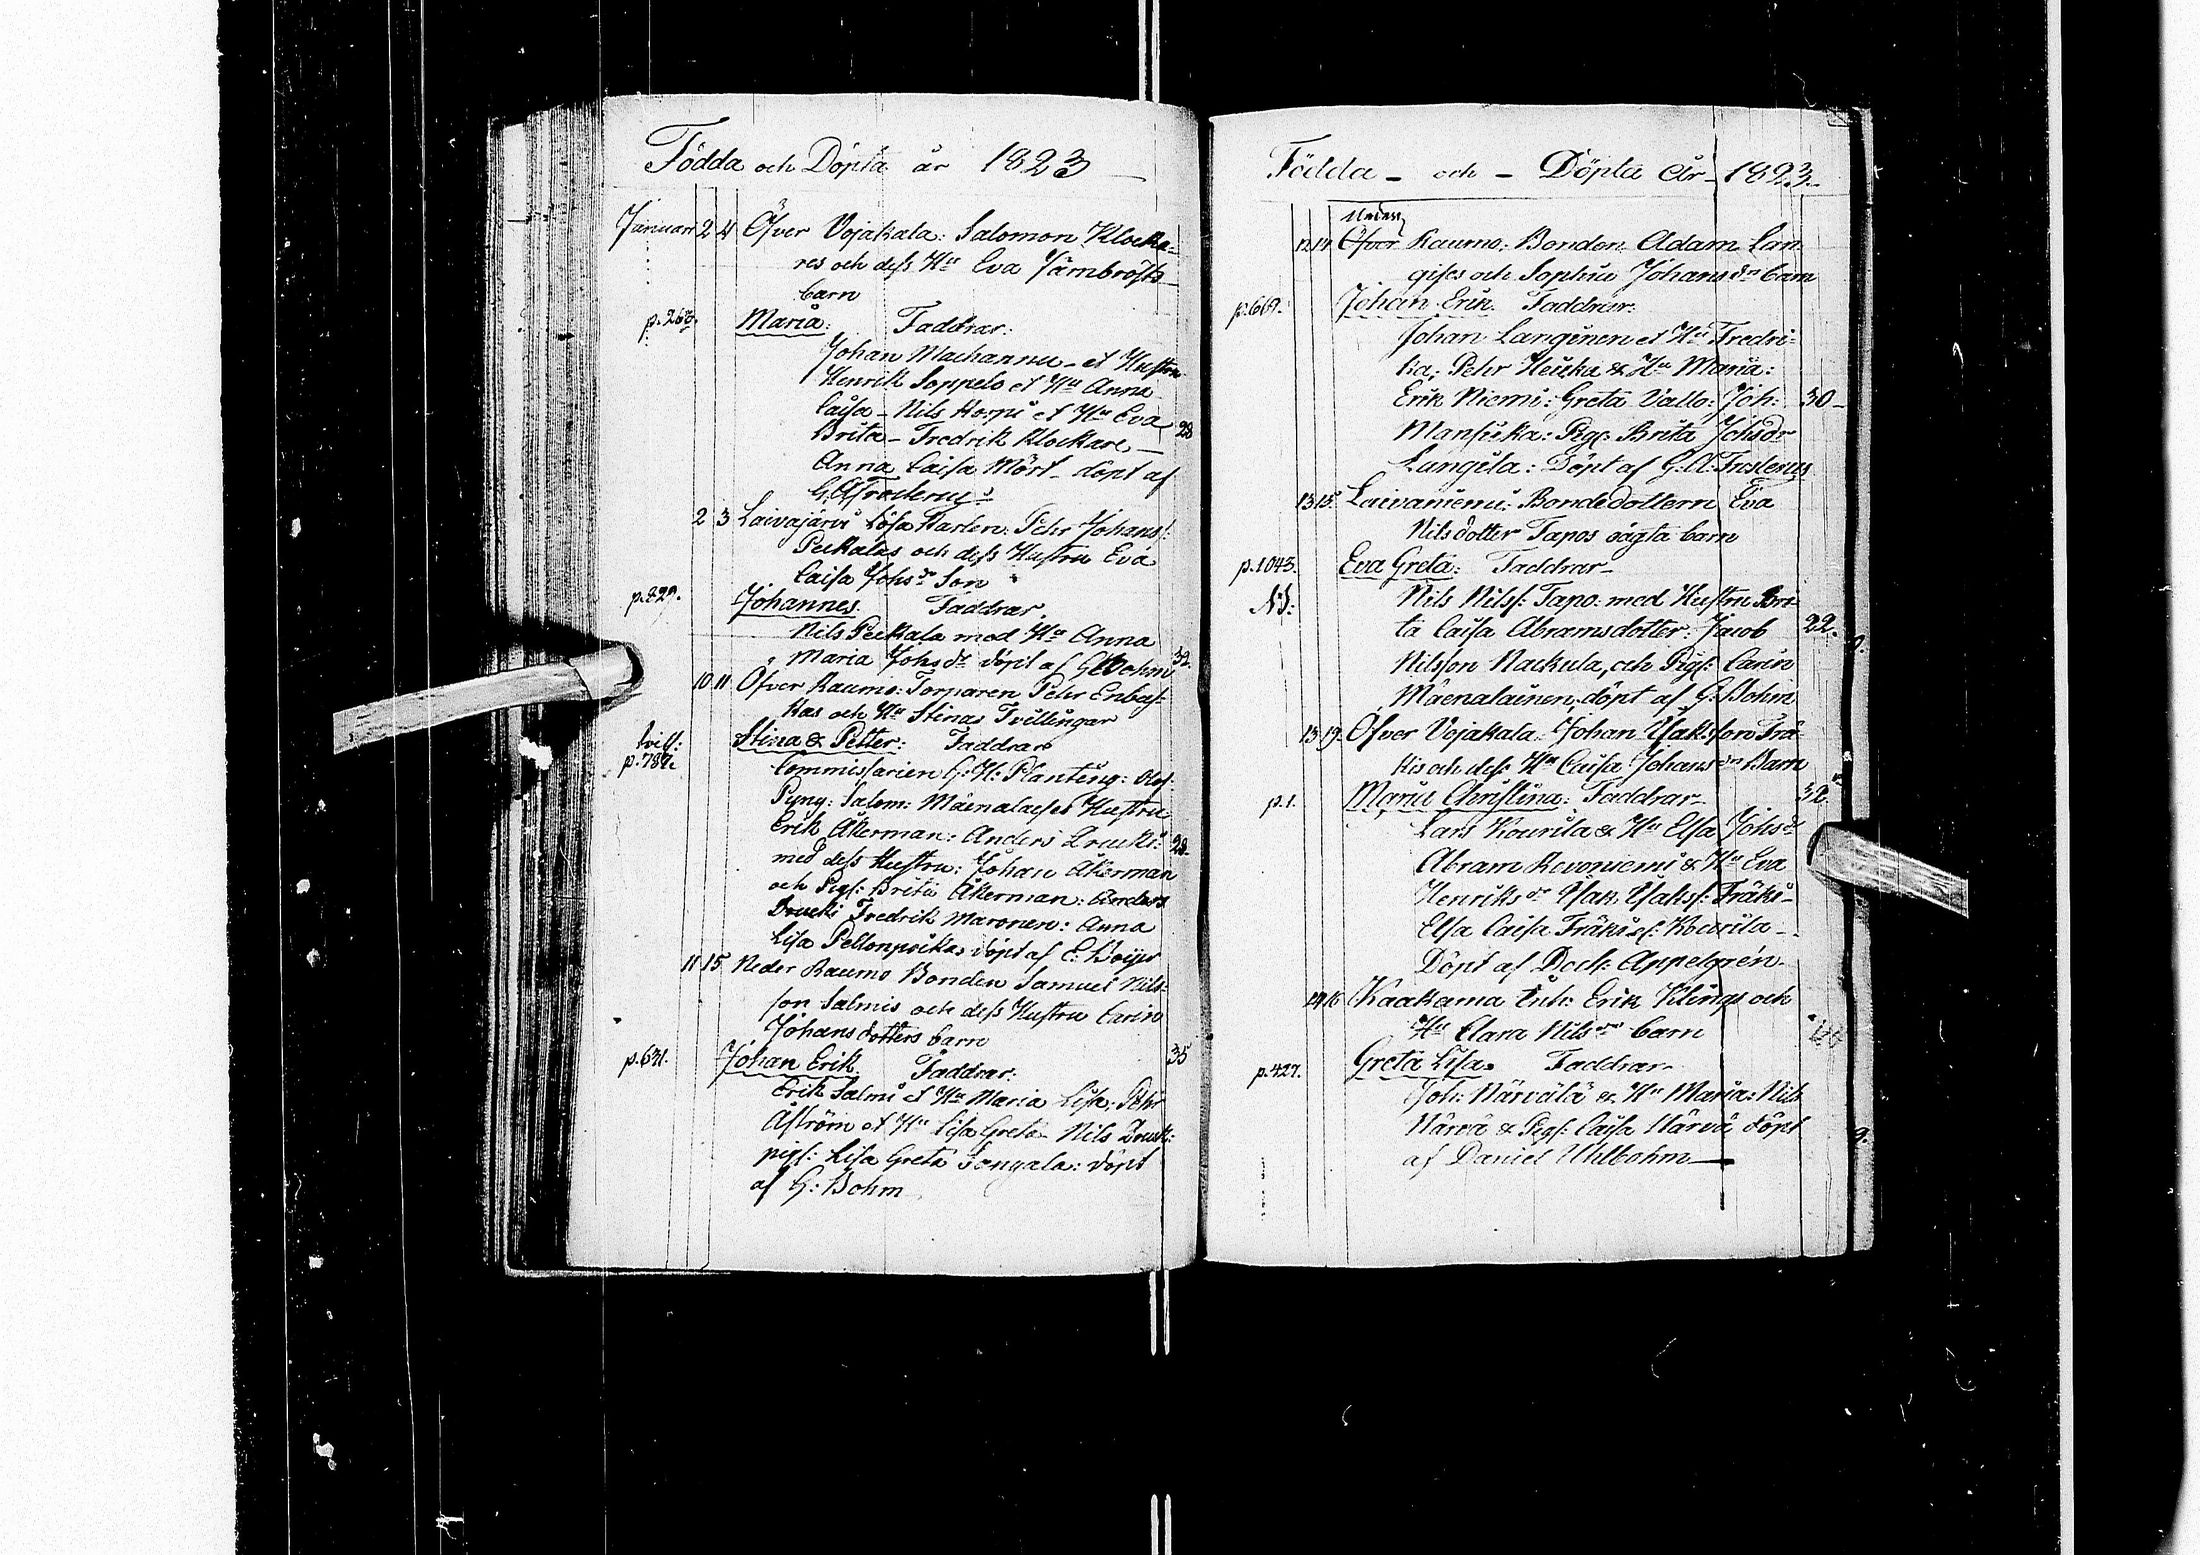 Födda och Döpta år 1823
Januari 2 4 Öfver Vojakala: Salomon Klocka-
res och dess Hu Eva Jämbröfts
barn
p. 263. Maria: Faddrar:
Johan Machannu - et Hustru
Henrik Soppelo et Hu Anna
Caisa - Nils Korpi et Hu Eva 28
Brita - Fredrik Klockare, -
Anna Caisa Mört - döpt af
G. A.
2 3 Laivajärvi Lösa Karlen: Pehr Johans:
Peckalas och dess Hustru Eva
Caisa Johsdr Son
p. 829. Johannes. Faddrar,
Nils Peckala med Hu Anna
Maria Johsdr döpt af G Bohm 32.
10 11 Öfver Raumo: Torparen Pehr Enbus-
kas och Hu Stinas Tvillingar
tvill: Stina & Petter: Faddrar
p. 787.
Commissarien G: H: Planting: Olof
Pyny: Salom: Mäenalaises Hustru
Erik Åkerman: Anders Krucki: 28.
med dess Hustru: Johan Åkerman
och Pigs: Brita Åkerman: Anders
Krucki Fredrik Maronen: Anna
Lisa Pellonpoikka, döpt af E: Boijer
11 15 Neder Raumo Bonden Samuel Nils-
son Salmis och dess Hustru Carin
Johansdotters barn
p. 631. Johan Erik. Faddrar: 35
Erik Salmi et Hu Maria Lisa: Pehr
Åström et Hu Lisa Greta - Nils Kruck:
pigs: Lisa Greta Sangala: döpt
af G: Bohm
Födda - och - Döpta År - 1823.
Neder
12 14 Öfver Raumo: Bonden Adam Lan
gises och Sophia Johansdr barn
p. 669. Johan Erik. Faddrar:
Johan Langinen et Hu Fredri-
ka: Pehr Heicka & Hu Maria:
Erik Niemi: Greta Vallo: Joh: 30 -
Mansicka: Pigs: Brita Johsdr
Langila: Döpt af G: A:
13 15. Laivaniemi: Bondedottern Eva
Nilsdotter Tapos oägta barn
p. 1043. Eva Greta: Faddrar -
N:S: Nils Nilss: Tapo: med Hustru Bri-
ta Caisa Abramsdotter: Jacob 22.
Nilsson Nackula, och Pigs: Carin
Mäenalainen, döpt af G: Bohm
13 19. Öfver Vojakala: Johan Isaksson Frä-
kis och dess Hu Caisa Johansdr Barn
p. 1. Maria Christina: Faddrar - 32
Lars Kourila & Hu Elsa Johsdr
Abram Revoniemi & Hu Eva
Henriksdr Isak Isakss: Fräki -
Elsa Caisa Fräki et: Kourila -
Döpt af Doct: Appelgrén -
14 16 Kaakama Inh: Erik Klings och
Hu Clara Nilsdr barn
p. 427. Greta Lisa. Faddrar -
Joh: Närvälä & Hu Maria: Nils
Närvä & Pigs: Caisa Närvä döpt
af Daniel Uhlbohm -